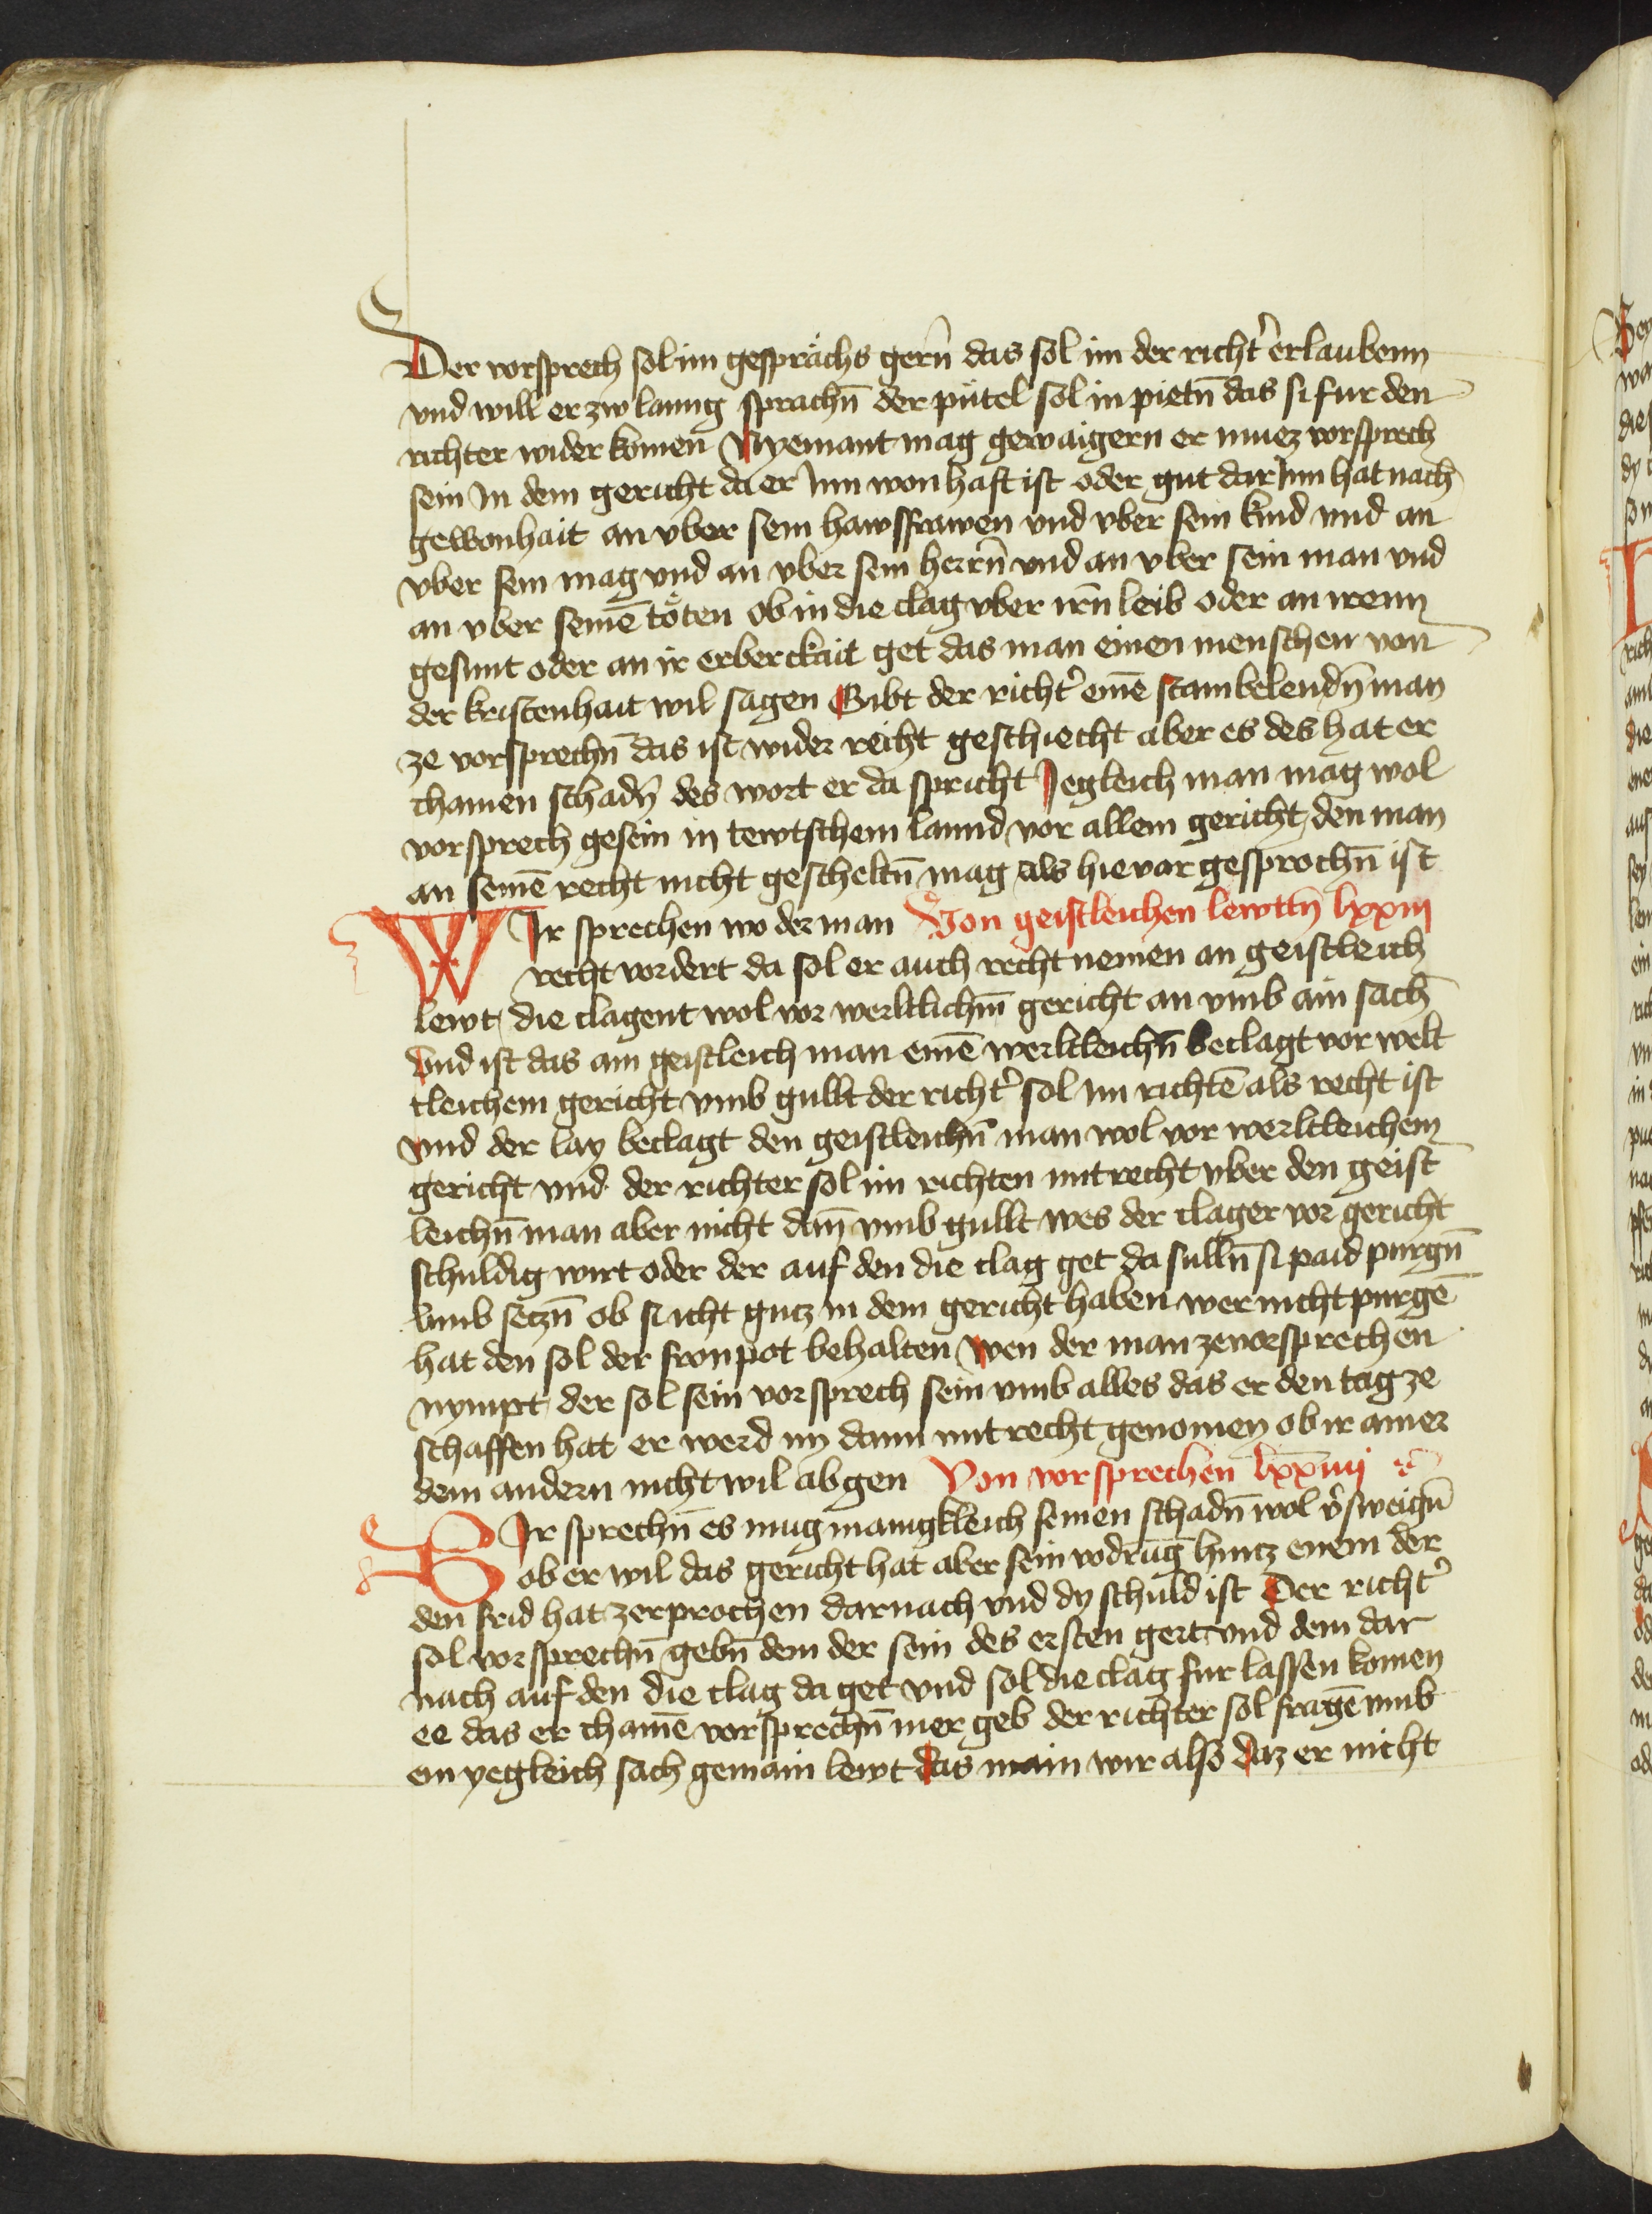 Der vorsprech sol im gesprächs gern̄ das sol im der richt᾽ erlaubenn
vnd will er zw lanng sprachn̄ der pütel sol in pietn̄ das si fur den
richter wider komen Nyemant mag gewaigern er muez vorsprech
sein In dem gericht da er Inn wonhaft ist oder gut dar Inn hat nach
gewonhait an vber sein hawsfrawen vnd vber sein kind vnd an
vber sein mag vnd an vber sein herrn̄ vnd an vber sein man vnd
an vber seinē töten ob in die clag vber irn̄ leib oder an irenn
gesunt oder an ir erberckait get das man einen menschen von
der kristenhait wil sagen Gibt der richt᾽ einē stainbelendn̄ man
ze vorsprechn̄ das ist wider recht geschiecht aber es des hat er
chainen schadn̄ des wort er da spricht Jegleich man mag wol
vorsprech gesein in tewtschem lannd vor allem gericht den man
an seinē recht nicht gescheltn̄ mag als hie vor gesprochn̄ ist
WIr sprechen wo der man Von geistleichen lewttn̄ lxxiii
recht vordert da sol er auch recht nemen an geistleich
lewt die clagent wol vor werltlichm̄ gericht an vmb ain sach
Vnd ist das ain geistleich man einē werltleichn̄ beclagt vor welt
tleichem gericht vmb gullt der richt᾽ sol im richtē als recht ist
vnd der lay beclagt den geistleichn̄ man wol vor werltleichem
gericht vnd der richter sol im richten mit recht vber den geist
leichn̄ man aber nicht dan̄ vmb gullt wes der clager vor gericht
schuldig wirt oder der auf den die clag get da sulln̄ si paid purgn̄
vmb setzn̄ ob si icht gutz in dem gericht haben wer nicht purgē
hat den sol der fronpot behalten Wen der man ze vorsprechen
nympt der sol sein vorsprech sein vmb alles das er den tag ze
schaffen hat er werd im dann mit recht genomen ob ir ainer
dem andern nicht wil abgen Von vorsprechen lxxiiii
WIr sprechn̄ es mug manigkleich seinen schadn̄ wol v᾽sweign̄
ob er wil das gericht hat aber sein vodrūg hintz enem der
den frid hat zerprochen darnach vnd dy schuld ist Der richt᾽
sol vorsprechn̄ gebn̄ dem der sein des ersten gert vnd dem dar
nach auf den die clag da get vnd sol die clag fur lassen komen
ee das er chainē vorsprechn̄ mer geb der richter sol fragē vmb
ein yegleich sach gemain lewt das main wir also daz er nicht